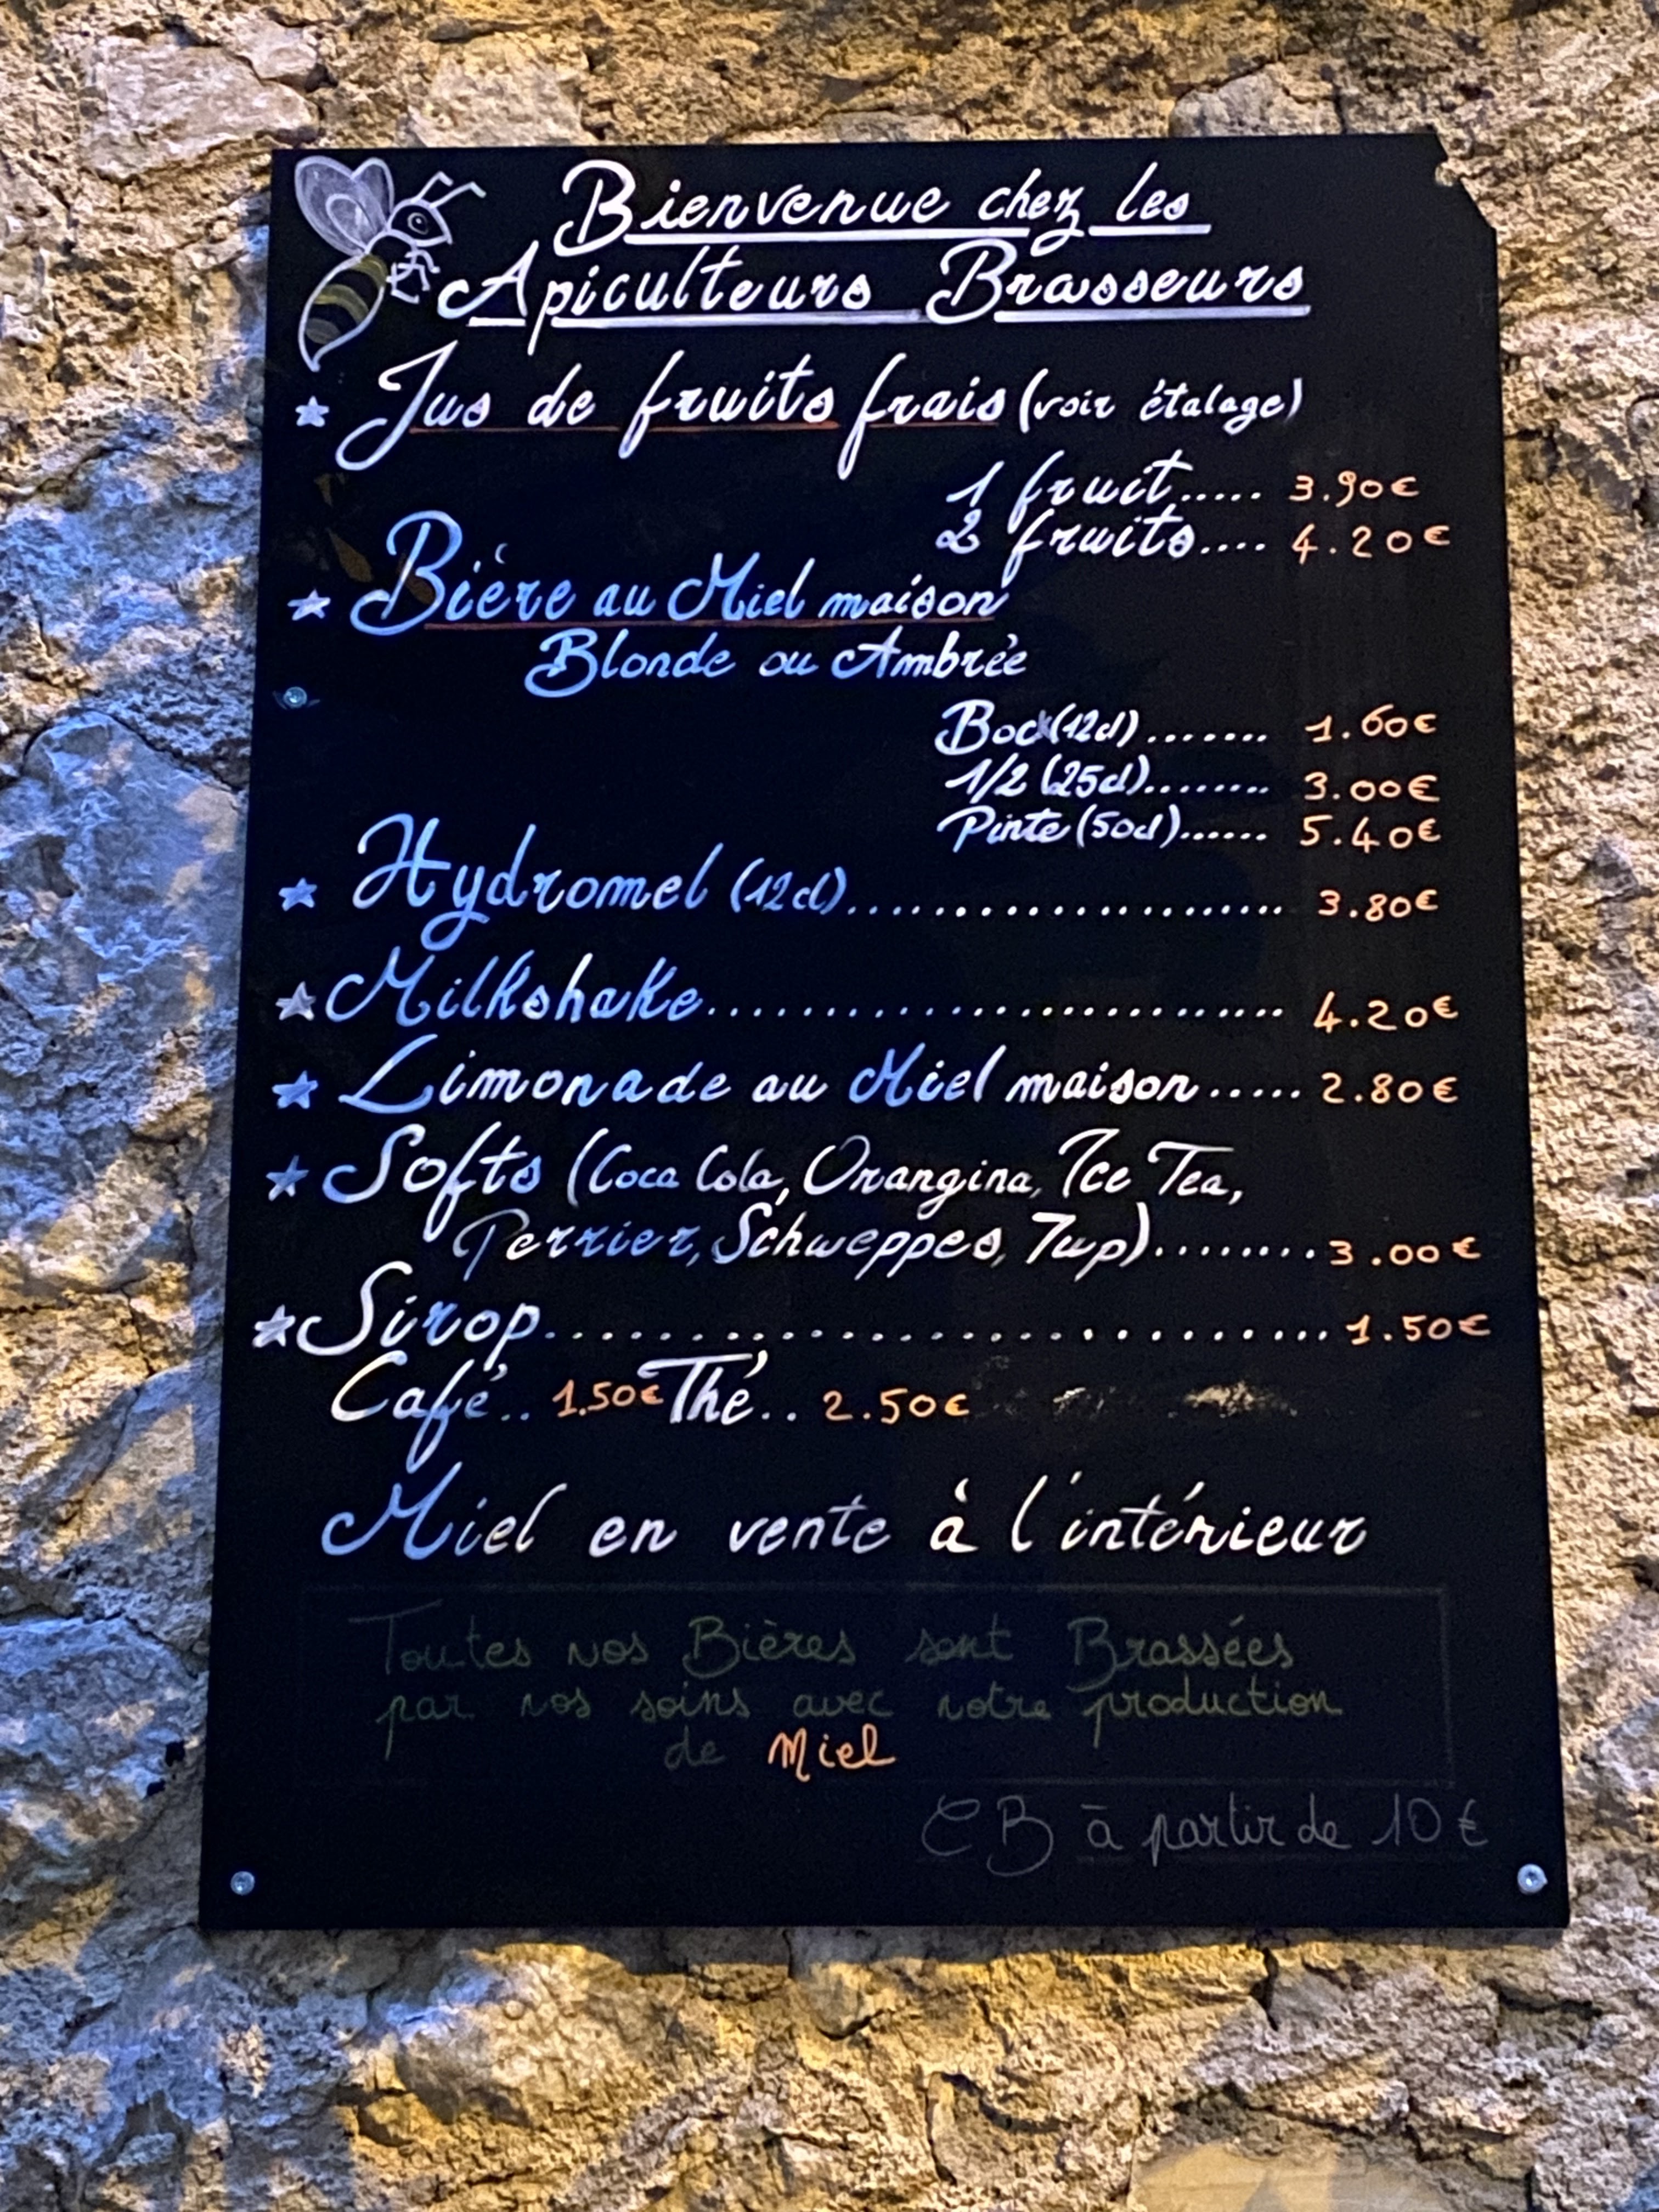 Bienvenue chez les
Apiculteurs Brasseurs
Jus de fruits frais (voir étalage)
1 fruit..... 3.90€
2 fruits.... 4.20€
Bière au Miel maison
Blonde ou Ambrée
Bock (12cl)....... 1.60€
1/2 (25cl)........ 3.00€
Pinte (50cl)...... 5.40€
Hydromel (12cl)....................... 3.80€
Milkshake........................... 4.20€
Limonade au Miel maison..... 2.80€
Softs (Coca Cola, Orangina, Ice Tea,
Perrier, Schweppes, 7up)........3.00€
Sirop...........................1.50€
Café.. 1.50€ Thé.. 2.50€
Miel en vente à l'intérieur
Toutes nos Bières sont Brassées
par nos soins avec notre production
de Miel
CB à partir de 10€